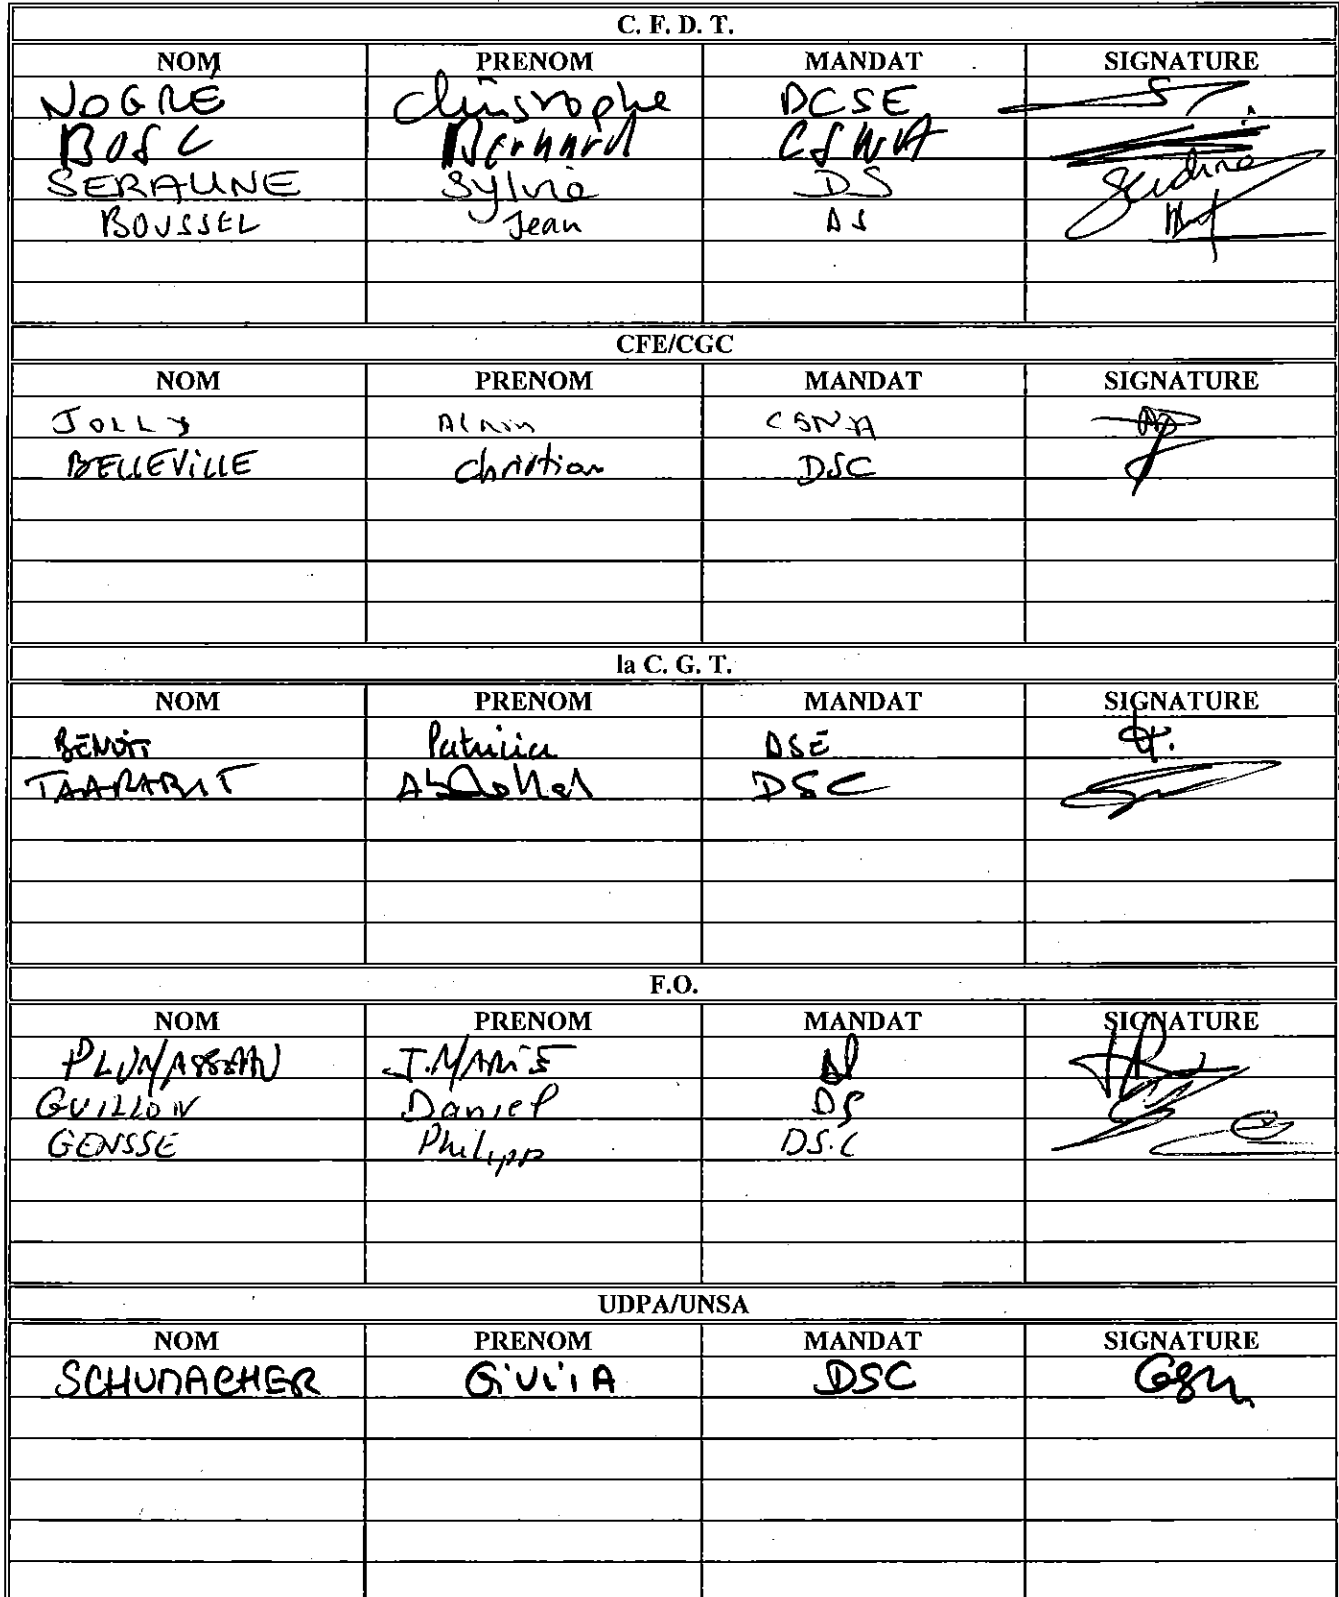 C. F. D. T.
NOM PRENOM MANDAT SIGNATURE
NOGRÉ Christophe DCSE
BOSC Bernard CSNVA
SERALINE Sylvie DS
BOUSSEL Jean DS
CFE/CGC
NOM PRENOM MANDAT SIGNATURE
JOLLY Alain CSNVA
BELLEVILLE Christian DSC
la C. G. T.
NOM PRENOM MANDAT SIGNATURE
BENOIT Patricia DSE
TAARABIT DSC
F.O.
NOM PRENOM MANDAT SIGNATURE
J.MARIE DS
GUILLON Daniel DS
GENSSE Philippe DS.C
UDPA/UNSA
NOM PRENOM MANDAT SIGNATURE
SCHUMACHER GiULiA DSC